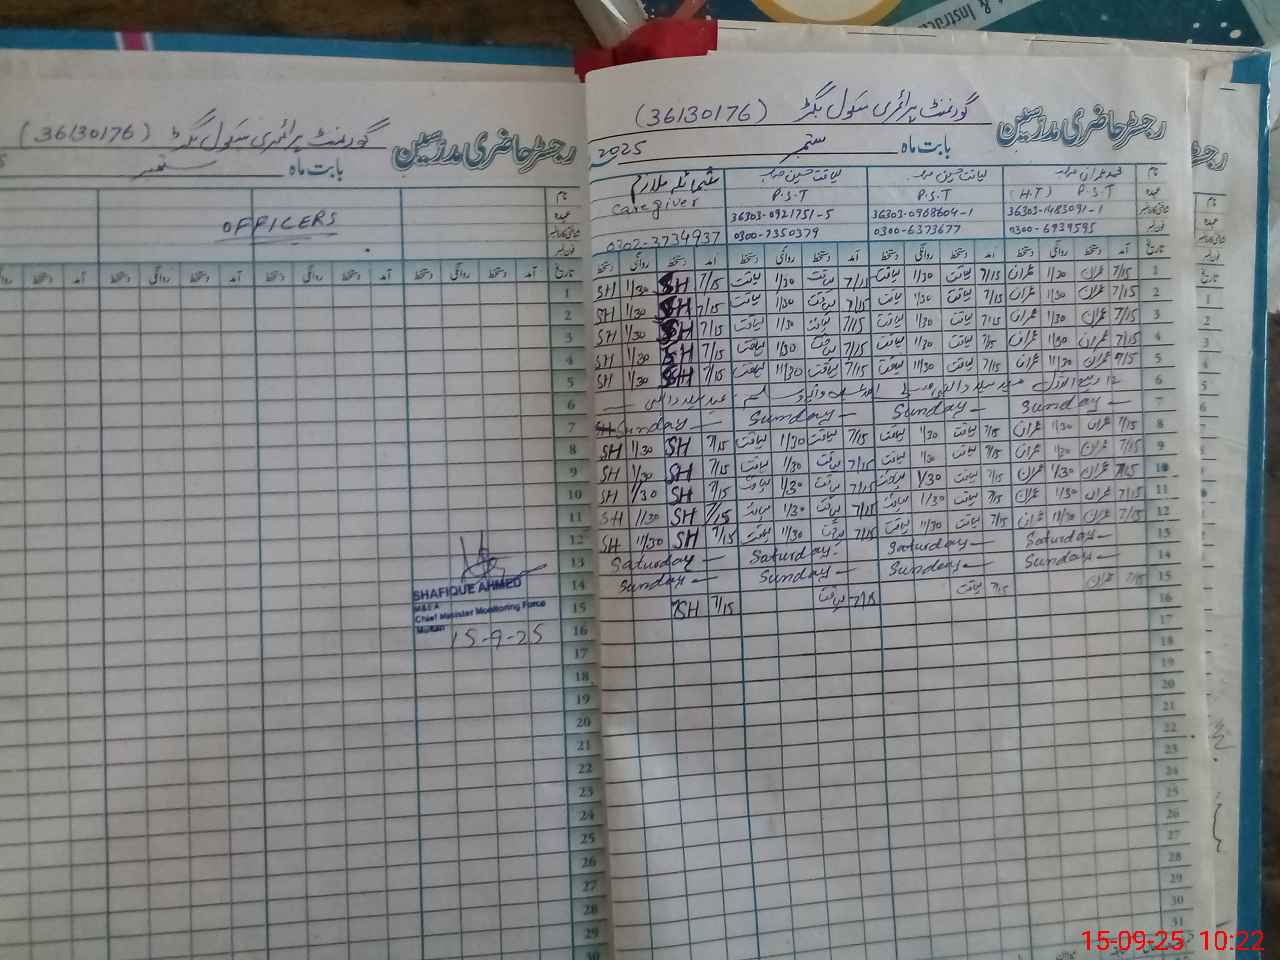 & Instruc
رجسٹر حاضری مدرسین گورنمنٹ پرائمری سکول بگڑ (36130176)
بابت ماہ ستمبر
OFFICERS
نام
عہدہ
شناختی کارڈ نمبر
فون نمبر
تاریخ آمد دستخط روانگی دستخط آمد دستخط روانگی دستخط آمد دستخط روانگی دستخط آمد
1
2
3
4
5
6
7
8
9
10
11
12
13
14
15
16
17
18
19
20
21
22
23
24
25
26
27
28
29
30
SHAFIQUE AHMED
M&EA
Chief Minister Monitoring Force
Multan
15-9-25
رجسٹر حاضری مدرسین گورنمنٹ پرائمری سکول بگڑ (36130176)
بابت ماہ ستمبر 2025
نام محمد عمران لیاقت حسین لیاقت حسین شمائلہ ملازم
عہدہ P.S.T (H.T) P.S.T P.S.T Caregiver
شناختی کارڈ نمبر 36303-1483091-1 36303-0968604-1 36303-0921751-5
فون نمبر 0300-6939595 0300-6373677 0300-7350379 0302-3734937
تاریخ آمد دستخط روانگی دستخط آمد دستخط روانگی دستخط آمد دستخط روانگی دستخط آمد دستخط روانگی دستخط
1 7/15 عمران 1/30 عمران 7/15 لیاقت 1/30 لیاقت 7/15 لیاقت 1/30 لیاقت 7/15 SH 1/30 SH
2 7/15 عمران 1/30 عمران 7/15 لیاقت 1/30 لیاقت 7/15 لیاقت 1/30 لیاقت 7/15 SH 1/30 SH
3 7/15 عمران 1/30 عمران 7/15 لیاقت 1/30 لیاقت 7/15 لیاقت 1/30 لیاقت 7/15 SH 1/30 SH
4 7/15 عمران 1/30 عمران 7/15 لیاقت 1/30 لیاقت 7/15 لیاقت 1/30 لیاقت 7/15 SH 1/30 SH
5 7/15 عمران 11/30 عمران 7/15 لیاقت 11/30 لیاقت 7/15 لیاقت 11/30 لیاقت 7/15 SH 1/30 SH
6 12 ربیع الاول عید میلاد النبی
7 Sunday Sunday Sunday Sunday
8 7/15 عمران 1/30 عمران 7/15 لیاقت 1/30 لیاقت 7/15 لیاقت 1/30 لیاقت 7/15 SH 1/30 SH
9 7/15 عمران 1/30 عمران 7/15 لیاقت 1/30 لیاقت 7/15 لیاقت 1/30 لیاقت 7/15 SH 1/30 SH
10 7/15 عمران 1/30 عمران 7/15 لیاقت 1/30 لیاقت 7/15 لیاقت 1/30 لیاقت 7/15 SH 1/30 SH
11 7/15 عمران 1/30 عمران 7/15 لیاقت 1/30 لیاقت 7/15 لیاقت 1/30 لیاقت 7/15 SH 1/30 SH
12 7/15 عمران 11/30 عمران 7/15 لیاقت 11/30 لیاقت 7/15 لیاقت 11/30 لیاقت 7/15 SH 11/30 SH
13 Saturday Saturday Saturday Saturday
14 Sunday Sunday Sunday Sunday
15 7/15 عمران 7/15 لیاقت 7/15 لیاقت 7/15 SH
16
17
18
19
20
21
22
23
24
25
26
27
28
29
30
31
15-09-25 10:22